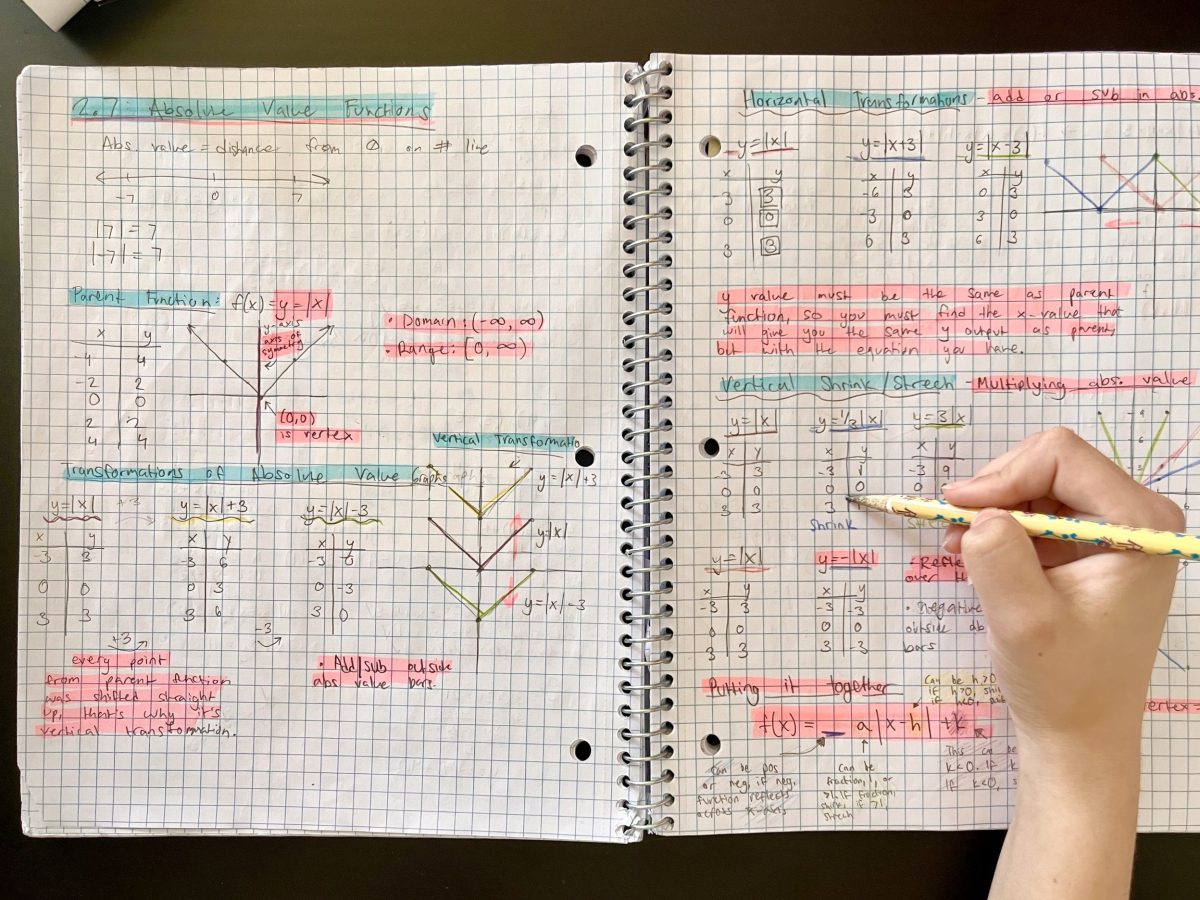 2.7: Absolute Value Functions
Abs. value = distance from 0 on # line
-7 0 7
|7| = 7
|-7| = 7
Parent Function: f(x) = y = |x|
x y
-4 4
-2 2
0 0
2 2
4 4
y-axis
axis of
symmetry
(0,0)
is vertex
• Domain: (-∞, ∞)
• Range: [0, ∞)
Vertical Transformatio
Transformations of Absolute Value Graphs
y=|x| +3 y=|x|+3 y=|x|-3
x y x y x y
-3 3 -3 6 -3 0
0 0 0 3 0 -3
3 3 3 6 3 0
+3 -3
y=|x|+3
y=|x|
y=|x|-3
every point
from parent function
was shifted straight
up, that's why it's
vertical transformation.
• Add/sub outside
abs value bars.
Horizontal Transformations - add or sub in abs.
y=|x| y=|x+3| y=|x-3|
x y x y x y
3 3 -6 3 0 3
0 0 -3 0 3 0
3 3 6 3 6 3
y value must be the same as parent
function, so you must find the x-value that
will give you the same y output as parent,
but with the equation you have.
Vertical Shrink/Strech - Multiplying abs. value
y=|x| y=1/3|x| y=3|x
x y x y x y
-3 3 -3 1 -3 9
0 0 0 0 0
3 3 3
Shrink
y=|x| y=-|x| • Refle
x y x y over th
-3 3 -3 -3 • negative
0 0 0 0 outside ab
3 3 3 -3 bars
Putting it together
can be h>0
if h>0, shi
if h<0,
f(x) = _ a|x-h| + k
ertex=
can be pos
or neg, if neg,
function reflects
across x-axis
can be
fraction, 1, or
>1. If fraction,
shrink, if >1,
strech
This can be
k<0. If k
If k<0, s